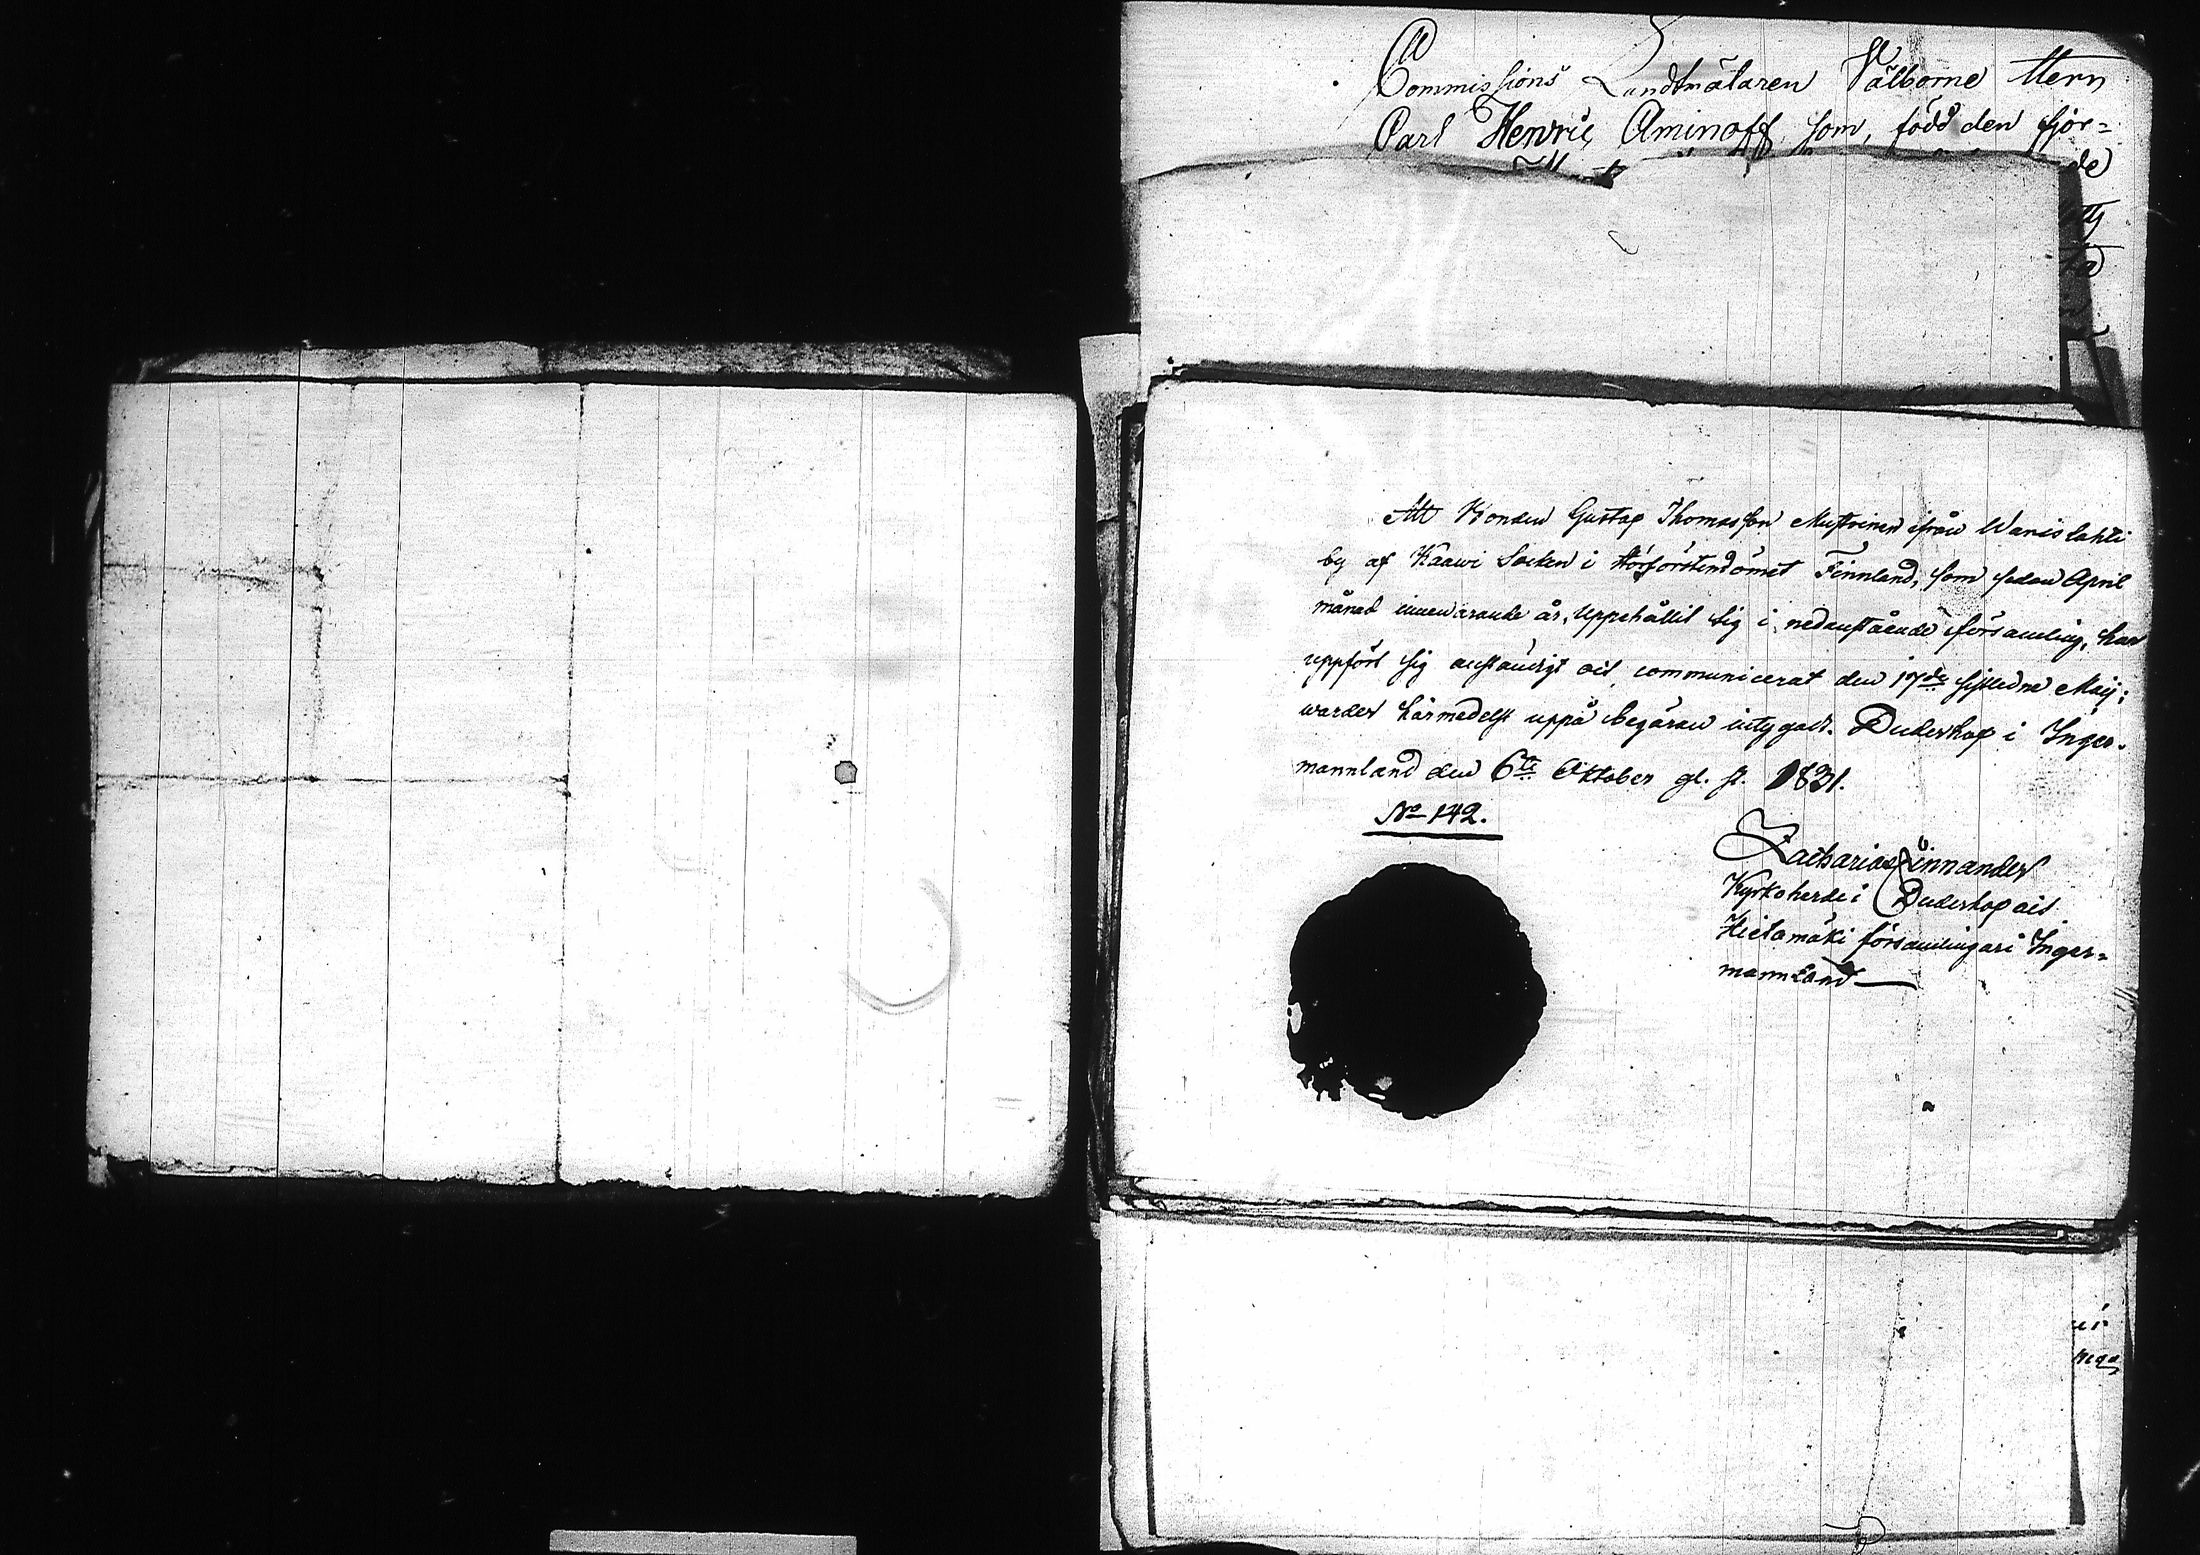 Commissions Landtmätaren Välborne Herr
Carl Henric Aminoff, som, född den fjor=
de
Att Bonden Gustaf Thomasson Mustoinen ifrån Wanislahti
by af Kaawi Socken i Storförstendömet Finnland, som sedan April
månad innewarande år, uppehållit sig i nedanstående församling, har
uppfört sig anständigt och communicerat den 17de sistledne Maij;
warder härmedelst uppå begäran intygadt. Duderhof i Inger-
mannland den 6te Oktober gl. st. 1831.
No 142.
Zacharias Linnander
Kyrkoherde i Duderhof och
Hietamäki församlingar i Inger=
mannland